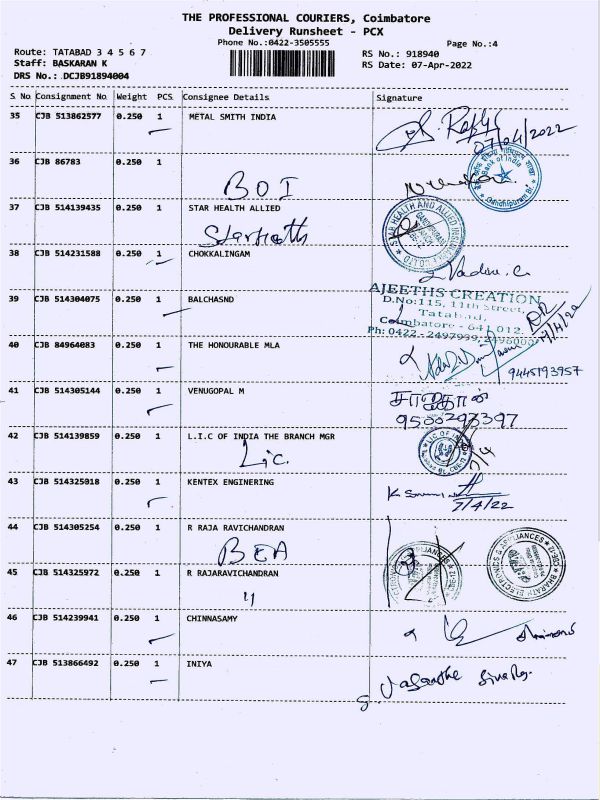 THE PROFESSIONAL COURIERS, Coimbatore
Delivery Runsheet - PCX
Phone No.:0422-3505555
Page No.:4
Route: TATABAD 3 4 5 6 7
RS No.: 918940
Staff: BASKARAN K
RS Date: 07-Apr-2022
DRS No.: DCJB91894004
S No Consignment No Weight PCS Consignee Details Signature
35 CJB 513862577 0.250 1 METAL SMITH INDIA
07/04/2022
36 CJB 86783 0.250 1
BOI
Bank of India
Gandhipuram Br.
37 CJB 514139435 0.250 1 STAR HEALTH ALLIED
STAR HEALTH AND ALLIED INSURANCE CO LTD
38 CJB 514231588 0.250 1 CHOKKALINGAM
39 CJB 514304075 0.250 1 BALCHASND
AJEETHS CREATION
D.No:115, 11th Street,
Tatabad,
Coimbatore - 641 012.
Ph: 0422 - 2497999, 2496000
7/4/22
40 CJB 84964083 0.250 1 THE HONOURABLE MLA
9445193957
41 CJB 514305144 0.250 1 VENUGOPAL M
9500293397
42 CJB 514139859 0.250 1 L.I.C OF INDIA THE BRANCH MGR
Lic.
7/4
43 CJB 514325018 0.250 1 KENTEX ENGINERING
7/4/22
44 CJB 514305254 0.250 1 R RAJA RAVICHANDRAN
BEA
BHARATH ELECTRONICS & APPLIANCES
CBE-12
45 CJB 514325972 0.250 1 R RAJARAVICHANDRAN
46 CJB 514239941 0.250 1 CHINNASAMY
47 CJB 513866492 0.250 1 INIYA